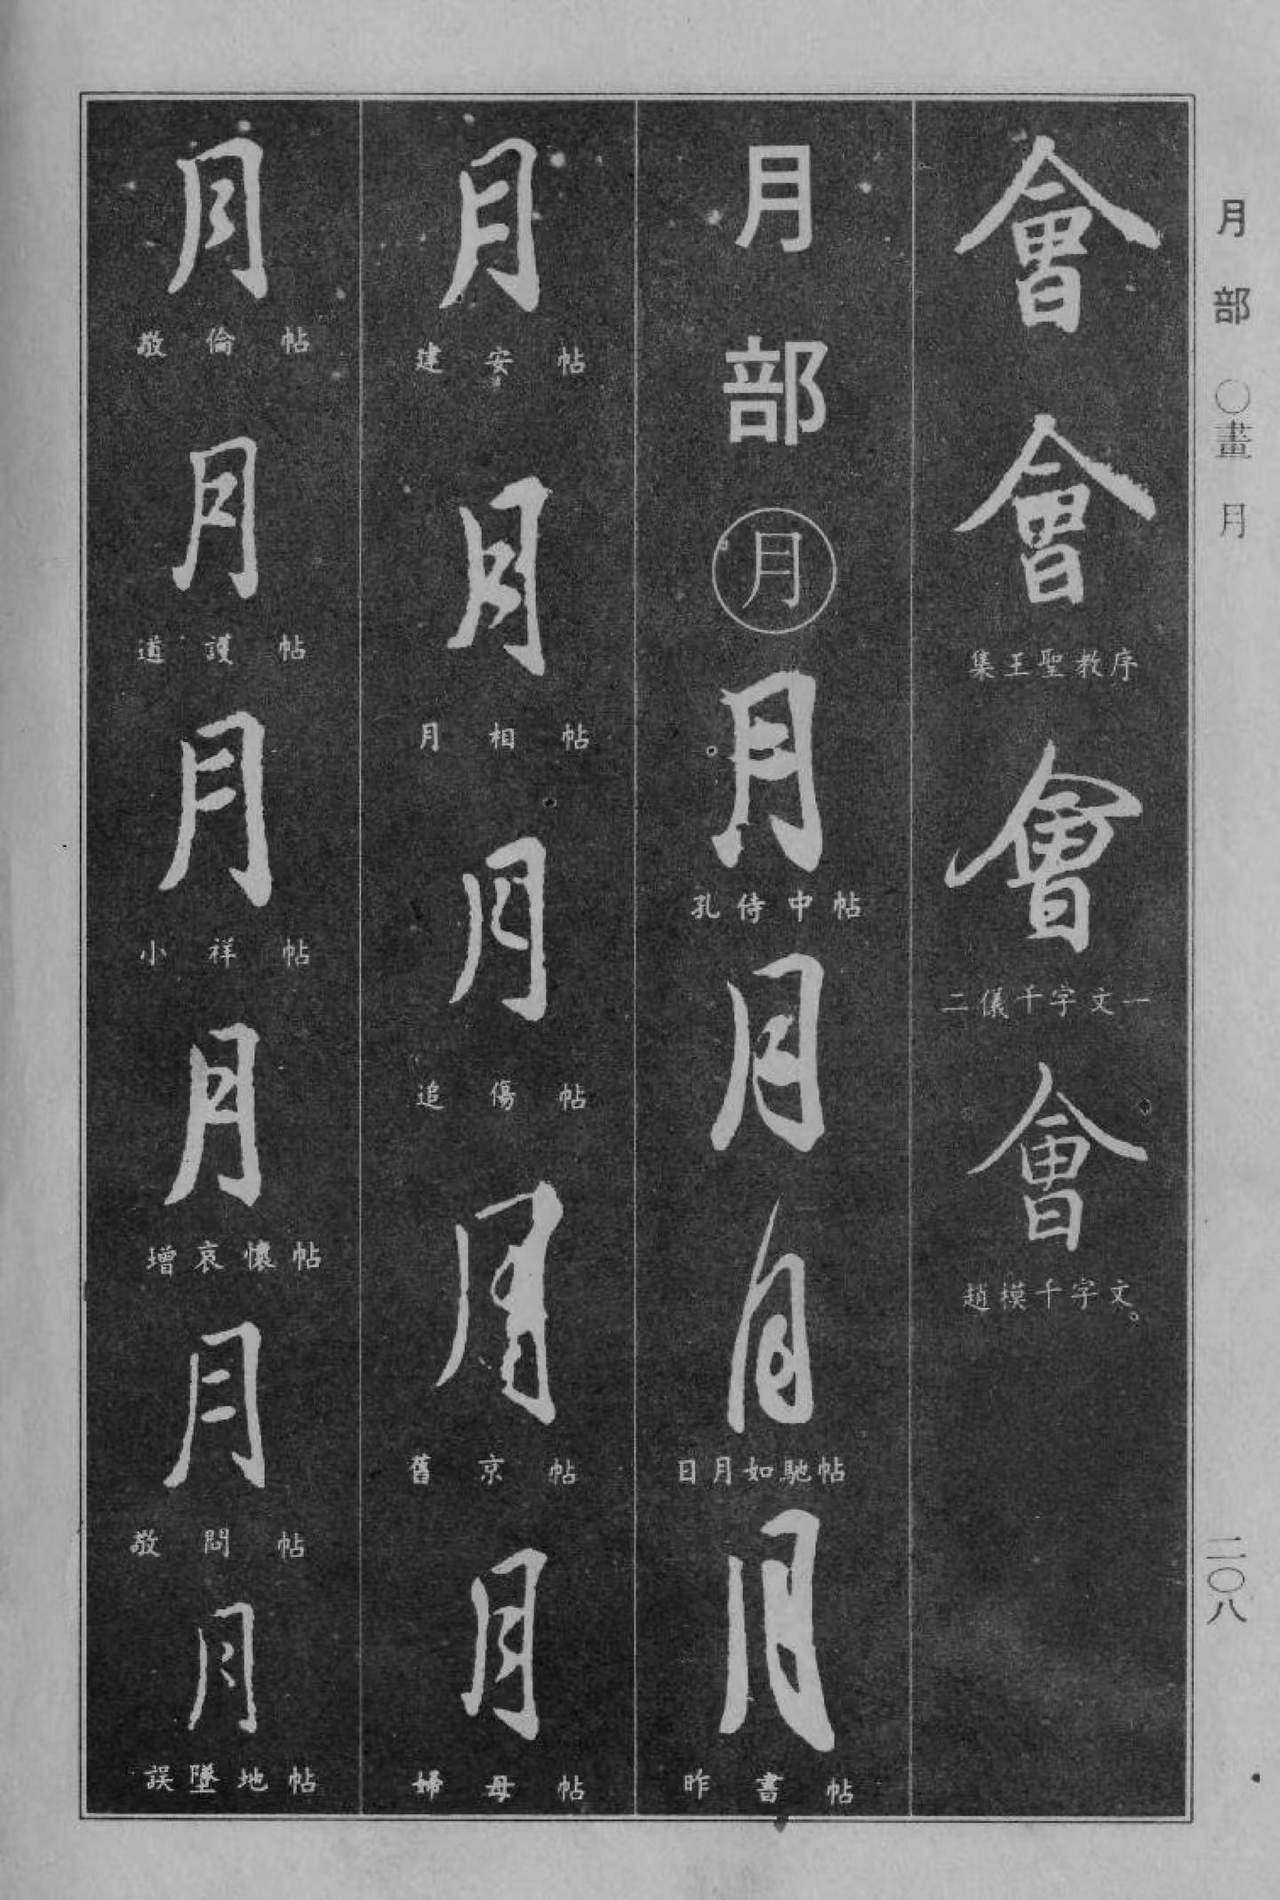 月部　〇畫　月
二〇八
會
會
集王聖教序
會
二儀千字文一
會
趙模千字文
月部
月
月
孔侍中帖
月
月
日月如馳帖
月
昨書帖
月
建安帖
月
月相帖
月
追傷帖
月
舊京帖
月
婦母帖
月
敬倫帖
月
道護帖
月
小祥帖
月
增哀懷帖
月
敬問帖
月
誤墜地帖